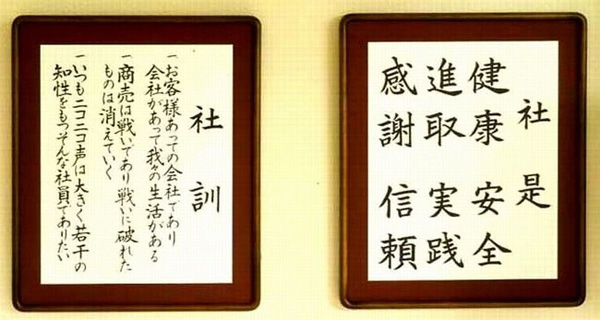 社是
健康 安全
進取 実践
感謝 信頼
社訓
一お客様あっての会社であり
会社があって我々の生活がある
一商売は戦いであり戦いに破れた
ものは消えていく
一いつもニコニコ声は大きく若干の
知性をもつそんな社員でありたい